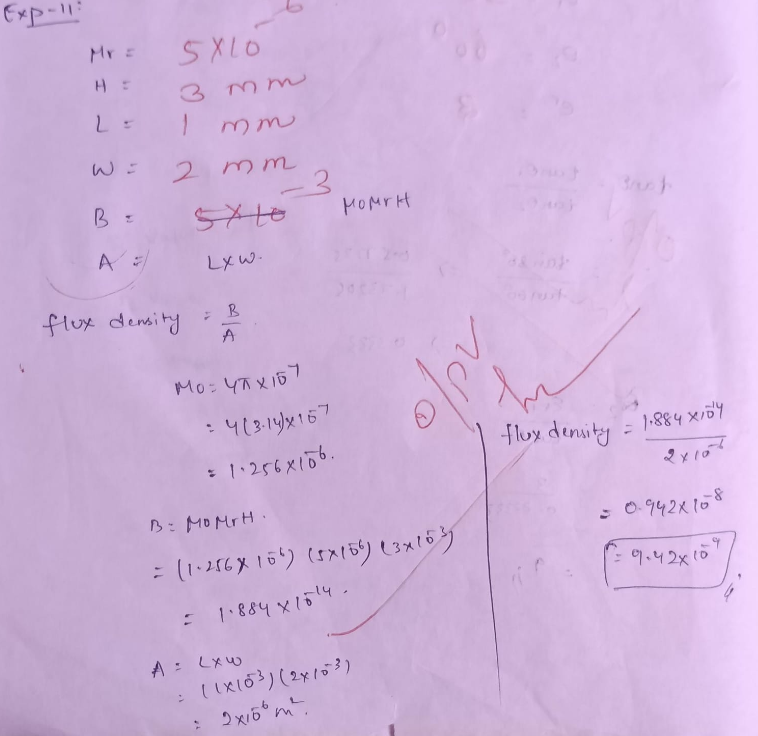 Exp-11:
Mr = 5×10⁻⁶
H = 3 mm
L = 1 mm
W = 2 mm
B = 5×10⁻³ MoMrH
A = L×W.
flux density = B/A
Mo = 4π×10⁻⁷
= 4(3.14)×10⁻⁷
= 1.256×10⁻⁶.
B = MoMrH.
= (1.256×10⁻⁶) (5×10⁻⁶) (3×10⁻³)
= 1.884×10⁻¹⁴.
A = L×W
= (1×10⁻³) (2×10⁻³)
= 2×10⁻⁶ m².
o/p ✓
flux density = 1.884×10⁻¹⁴ / 2×10⁻⁶
= 0.942×10⁻⁸
= 9.42×10⁻⁹